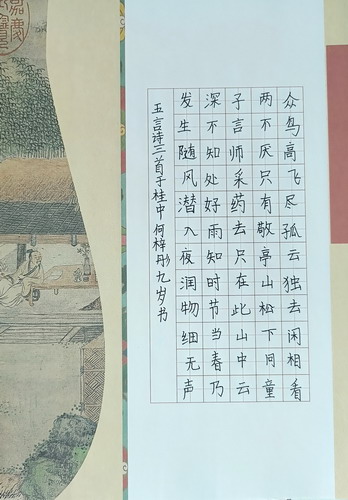 众鸟高飞尽孤云独去闲相看
两不厌只有敬亭山松下问童
子言师采药去只在此山中云
深不知处好雨知时节当春乃
发生随风潜入夜润物细无声
五言诗三首于桂中何梓彤九岁书